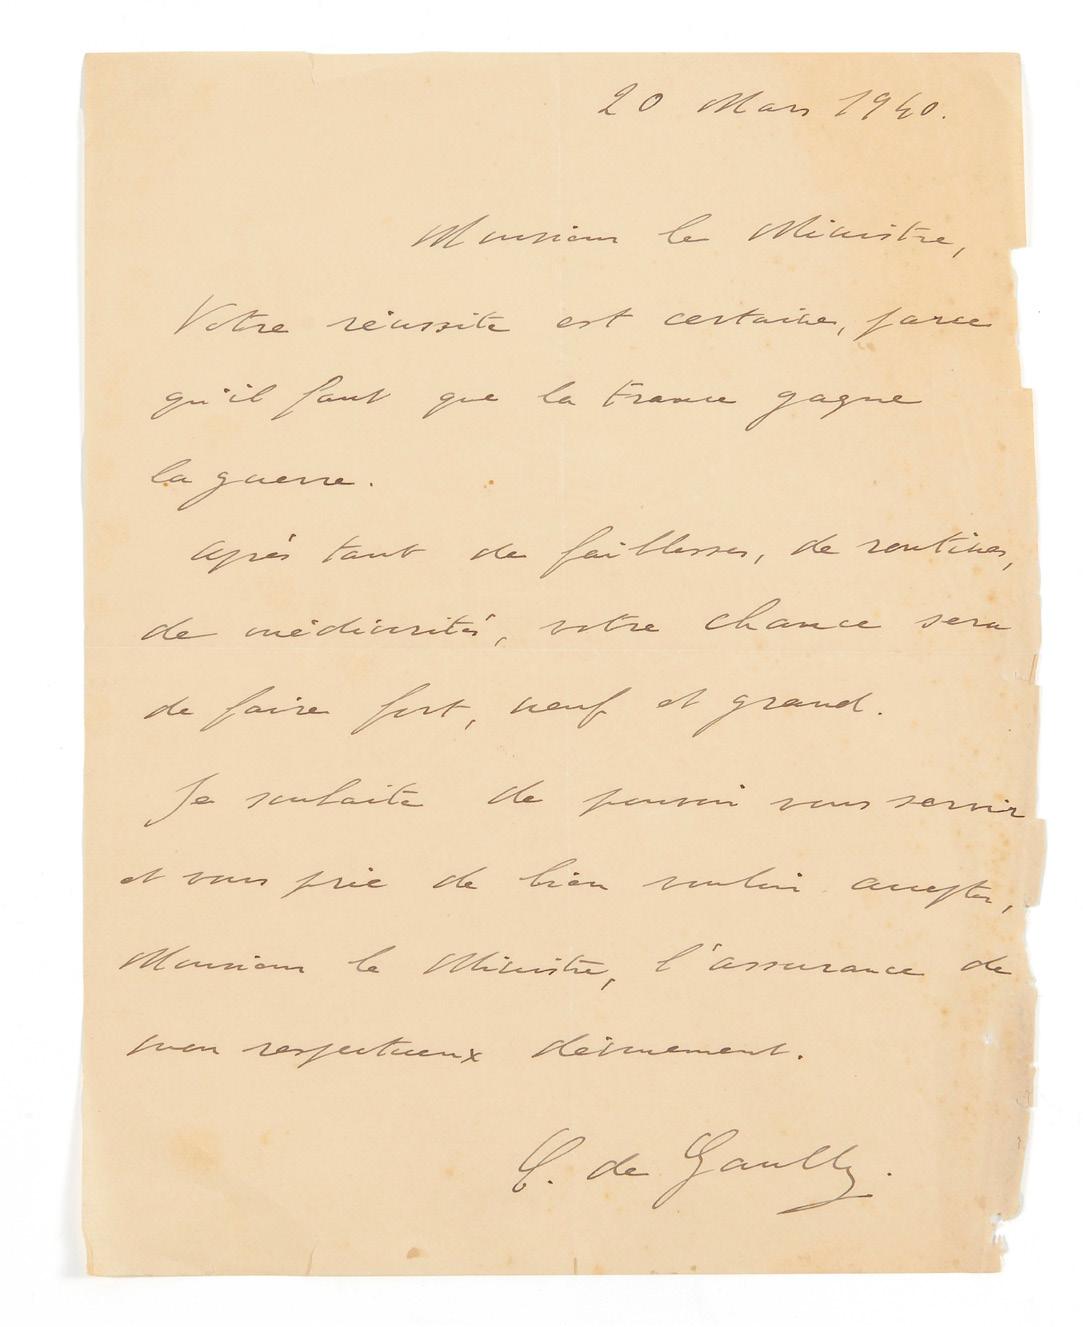 20 Mars 1940.
Monsieur le Ministre,
Votre réussite est certaine, parce
qu'il faut que la France gagne
la guerre.
Après tant de faiblesses, de routines,
de médiocrités, votre chance sera
de faire fort, neuf et grand.
Je souhaite de pouvoir vous servir
et vous prie de bien vouloir accepter,
Monsieur le Ministre, l'assurance de
mon respectueux dévouement.
C. de Gaulle.